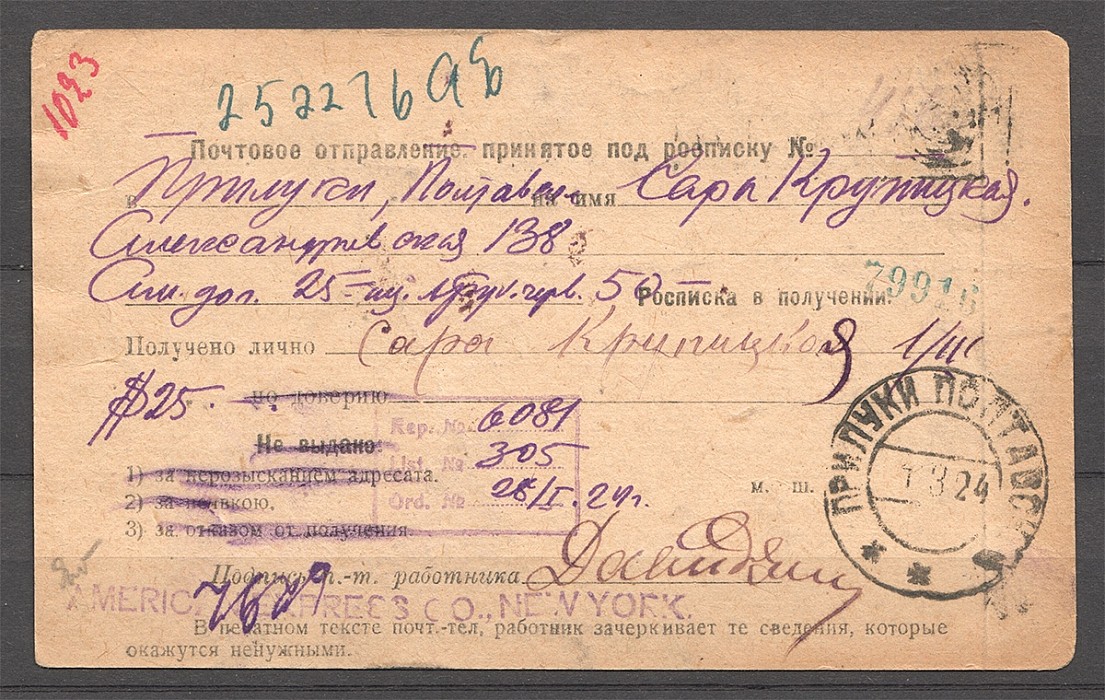 1023
2522716
Почтовое отправление, принятое под росписку №
в Прилуки, Полтавск. на имя Сара Крупицкая.
Александровская 138
25 50 Росписка в получении 79916
Получено лично Сара Крупицкая 1/III
$25. по доверию
Rep. № 6081
Не выдано:
List № 305
1) за нерозысканием адресата.
Ord. № 26/I. 24г.
2) за неявкою. м. ш.
3) за отказом от получения.
ПРИЛУКИ ПОЛТАВСК
1 3 24
Подпись п.-т. работника
7679
AMERICAN EXPRESS CO., NEW YORK.
В печатном тексте почт.-тел, работник зачеркивает те сведения, которые
окажутся ненужными.